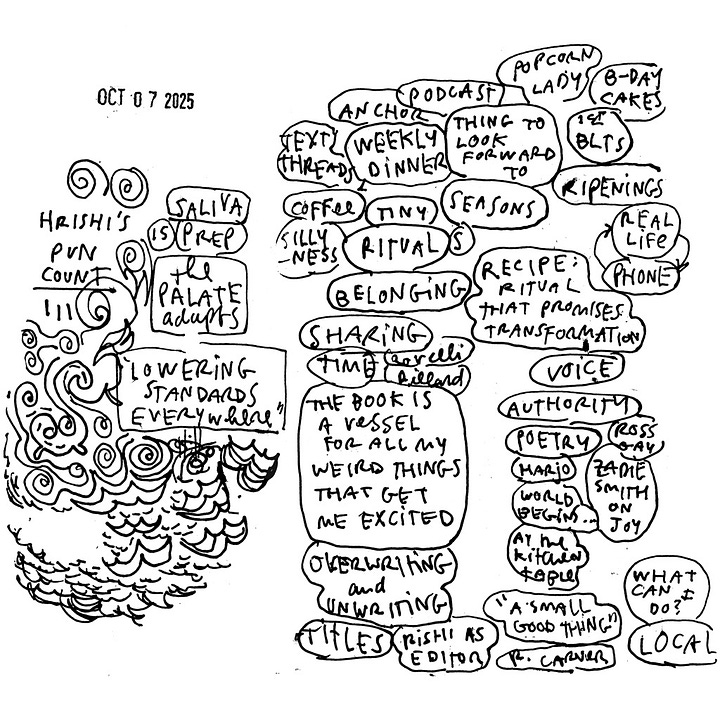 OCT 07 2025
HRISHI'S
PUN
COUNT
III
SALIVA
IS PREP
the
PALATE
adapts
"LOWERING
STANDARDS
EVERYwhere"
POPCORN
LADY
B-DAY
CAKES
PODCAST
ANCHOR
TEXT
THREADS
WEEKLY
DINNER
THING TO
LOOK
FORWARD
TO
1ST
BLTS
RIPENINGS
COFFee
TINY
SEASONS
SILLY
-NESS
RITUAL S
REAL
LIFE
PHONE
BELONGING
RECIPE:
RITUAL
THAT PROMISES
TRANSFORMATION
SHARING
TIME
VOICE
THE BOOK IS
A VESSEL
FOR ALL MY
WEIRD THINGS
THAT GET
ME EXCITED
AUTHORITY
POETRY
ROSS
GAY
HARJO
WORLD
BEGINS...
AT the
kitchen
table
ZADIE
SMITH
ON
JOY
OVERWRITING
and
UNWRITING
"A SMALL
GOOD THING"
R. CARVER
WHAT
CAN I
DO?
LOCAL
TITLES
RISHI AS
EDITOR